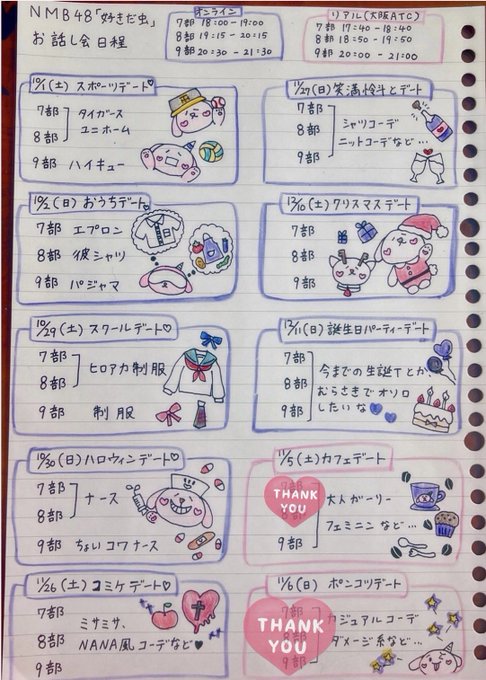 NMB48「好きだ虫」
お話し会日程
オンライン
7部 18:00-19:00
8部 19:15-20:15
9部 20:30-21:30
リアル(大阪ATC)
7部 17:40-18:40
8部 18:50-19:50
9部 20:00-21:00
10/1(土) スポーツデート♡
7部
8部
タイガース
ユニホーム
9部 ハイキュー
11/27(日)笑満怜斗とデート
7部
8部
9部
シャツコーデ
ニットコーデなど…
10/2(日) おうちデート
7部 エプロン
8部 彼シャツ
9部 パジャマ
12/10(土)クリスマスデート
7部
8部
9部
10/29(土) スクールデート♡
7部
8部
ヒロアカ制服
9部 制服
12/11(日)誕生日パーティーデート
7部
8部
9部
今までの生誕Tとか、
むらさきでオソロ
したいな
10/30(日)ハロウィンデート♡
7部
8部
ナース
9部 ちょいコワナース
11/5(土)カフェデート
7部
8部
9部
大人ガーリー
フェミニンなど…
THANK
YOU
11/26(土) コミケデート♡
7部
8部
9部
ミサミサ、
NANA風コーデなど♥
11/6(日) ポンコツデート
7部
8部
9部
カジュアルコーデ
ダメージ系など…
THANK
YOU